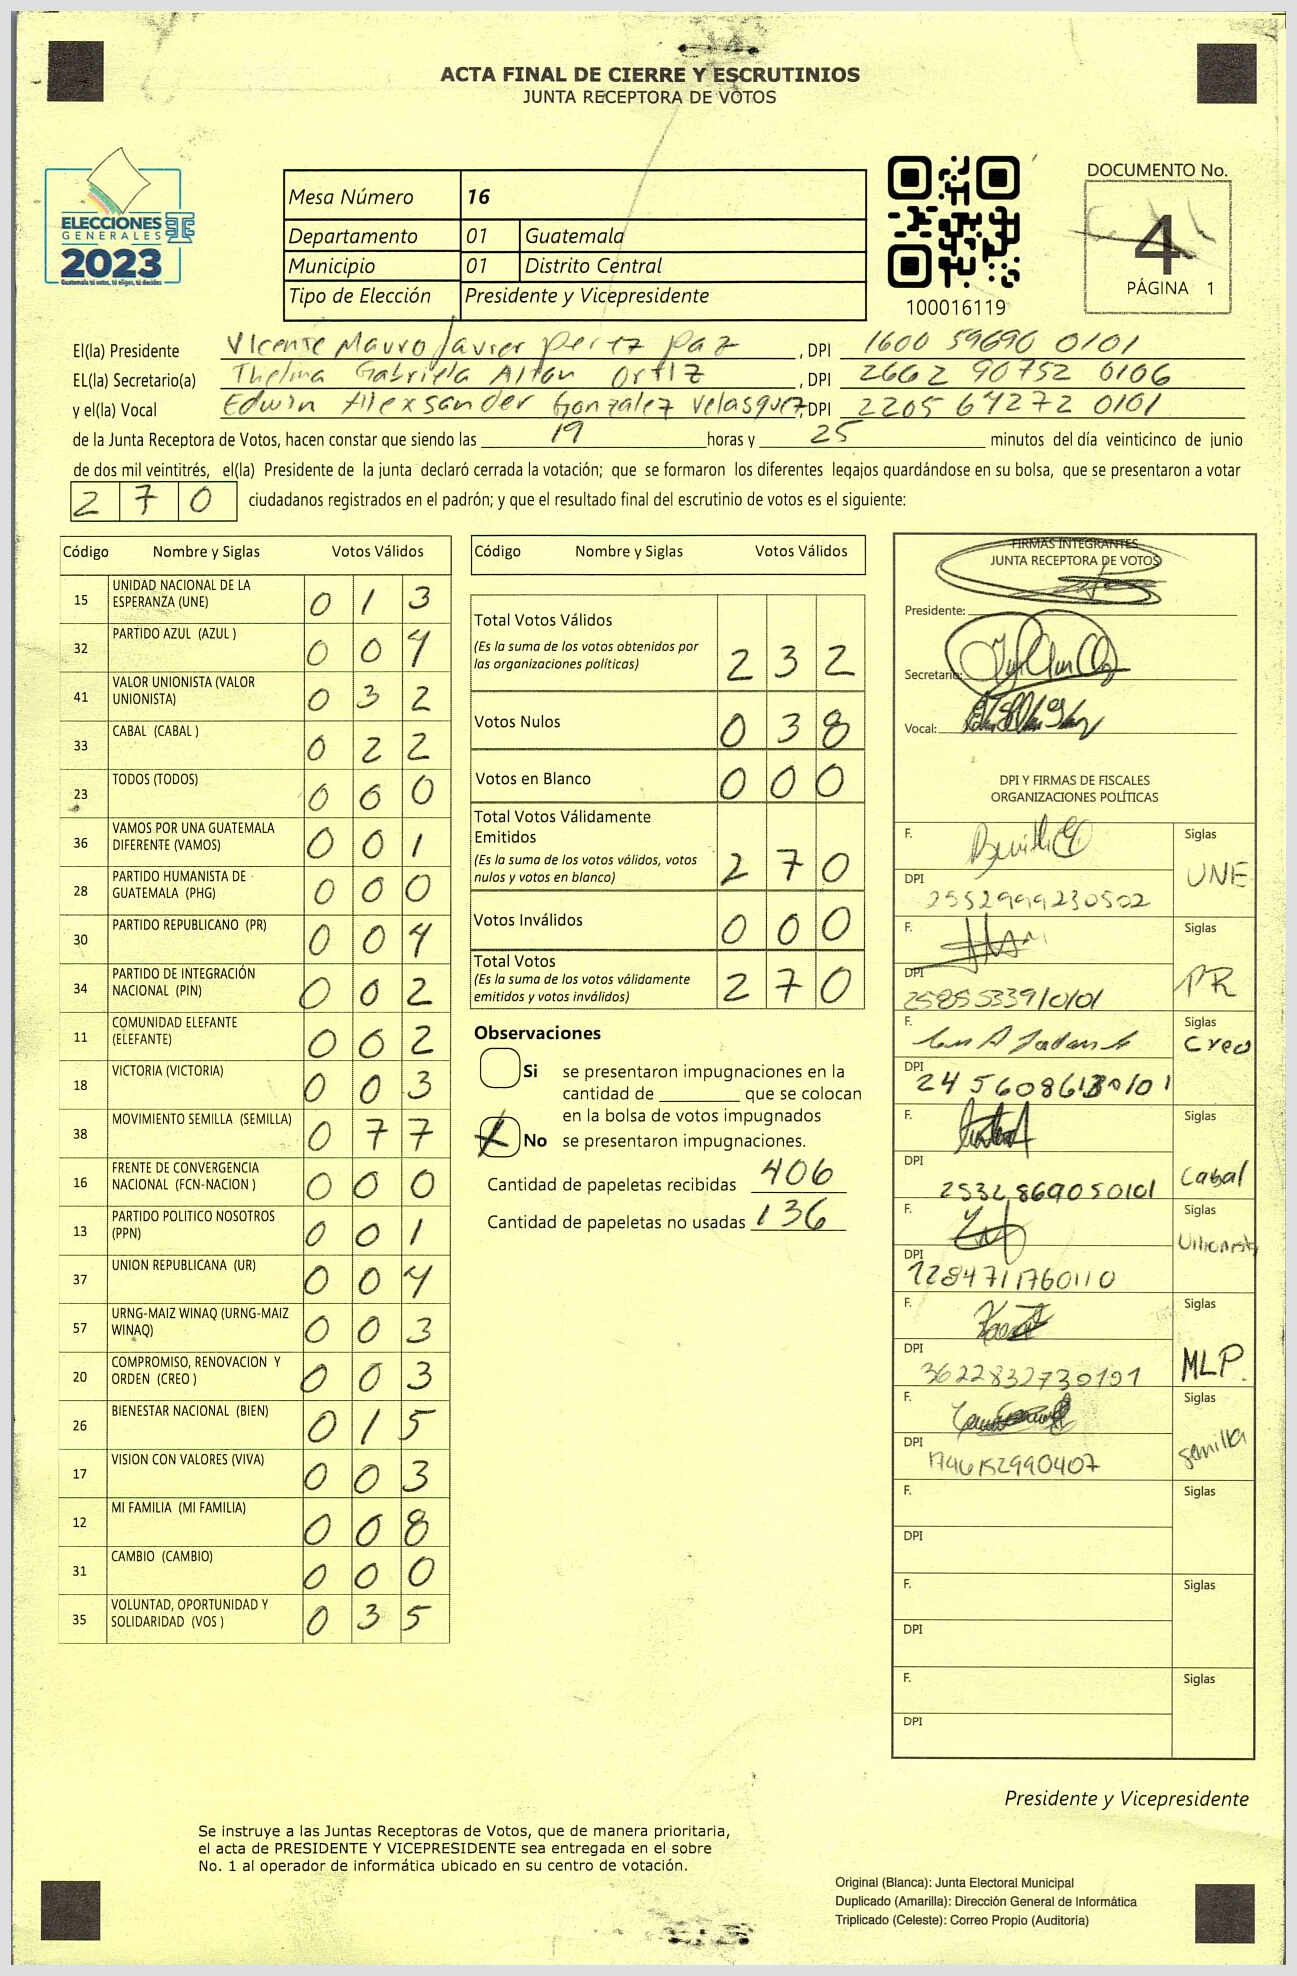 ACTA FINAL DE CIERRE Y ESCRUTINIOS
JUNTA RECEPTORA DE VOTOS
ELECCIONES
GENERALES
2023
Guatemala tú votas, tú eliges, tú decides
Mesa Número 16
Departamento 01 Guatemala
Municipio 01 Distrito Central
Tipo de Elección Presidente y Vicepresidente
100016119
DOCUMENTO No.
4
PÁGINA 1
El(la) Presidente Vicente Mauro Javier Perez Paz, DPI 1600 59690 0101
EL(la) Secretario(a) Thelma Gabriela Ortiz, DPI 2662 90752 0106
y el(la) Vocal Edwin Alexsander Gonzalez Velasquez, DPI 2205 64272 0101
de la Junta Receptora de Votos, hacen constar que siendo las 19 horas y 25 minutos del día veinticinco de junio
de dos mil veintitrés, el(la) Presidente de la junta declaró cerrada la votación; que se formaron los diferentes legajos quardándose en su bolsa, que se presentaron a votar
270 ciudadanos registrados en el padrón; y que el resultado final del escrutinio de votos es el siguiente:
Código Nombre y Siglas Votos Válidos
15 UNIDAD NACIONAL DE LA ESPERANZA (UNE) 0 1 3
32 PARTIDO AZUL (AZUL ) 0 0 4
41 VALOR UNIONISTA (VALOR UNIONISTA) 0 3 2
33 CABAL (CABAL ) 0 2 2
23 TODOS (TODOS) 0 0 0
36 VAMOS POR UNA GUATEMALA DIFERENTE (VAMOS) 0 0 1
28 PARTIDO HUMANISTA DE GUATEMALA (PHG) 0 0 0
30 PARTIDO REPUBLICANO (PR) 0 0 4
34 PARTIDO DE INTEGRACIÓN NACIONAL (PIN) 0 0 2
11 COMUNIDAD ELEFANTE (ELEFANTE) 0 0 2
18 VICTORIA (VICTORIA) 0 0 3
38 MOVIMIENTO SEMILLA (SEMILLA) 0 7 7
16 FRENTE DE CONVERGENCIA NACIONAL (FCN-NACION ) 0 0 0
13 PARTIDO POLITICO NOSOTROS (PPN) 0 0 1
37 UNION REPUBLICANA (UR) 0 0 4
57 URNG-MAIZ WINAQ (URNG-MAIZ WINAQ) 0 0 3
20 COMPROMISO, RENOVACION Y ORDEN (CREO ) 0 0 3
26 BIENESTAR NACIONAL (BIEN) 0 1 5
17 VISION CON VALORES (VIVA) 0 0 3
12 MI FAMILIA (MI FAMILIA) 0 0 8
31 CAMBIO (CAMBIO) 0 0 0
35 VOLUNTAD, OPORTUNIDAD Y SOLIDARIDAD (VOS ) 0 3 5
Código Nombre y Siglas Votos Válidos
Total Votos Válidos
(Es la suma de los votos obtenidos por
las organizaciones políticas) 2 3 2
Votos Nulos 0 3 8
Votos en Blanco 0 0 0
Total Votos Válidamente
Emitidos
(Es la suma de los votos válidos, votos
nulos y votos en blanco) 2 7 0
Votos Inválidos 0 0 0
Total Votos
(Es la suma de los votos válidamente
emitidos y votos inválidos) 2 7 0
Observaciones
Si se presentaron impugnaciones en la
cantidad de ________ que se colocan
en la bolsa de votos impugnados
X No se presentaron impugnaciones.
Cantidad de papeletas recibidas 406
Cantidad de papeletas no usadas 136
FIRMAS INTEGRANTES
JUNTA RECEPTORA DE VOTOS
Presidente:
Secretario:
Vocal:
DPI Y FIRMAS DE FISCALES
ORGANIZACIONES POLÍTICAS
F. Siglas UNE
DPI 2552999230502
F. Siglas PR
DPI 2585533910101
F. Siglas Creo
DPI
F. Siglas Cabal
DPI 2532869050101
F. Siglas Unionista
DPI
F. Siglas MLP.
DPI 3622832730101
F. Siglas Semilla
DPI 1746152990407
F. Siglas
DPI
F. Siglas
DPI
F. Siglas
DPI
Presidente y Vicepresidente
Se instruye a las Juntas Receptoras de Votos, que de manera prioritaria,
el acta de PRESIDENTE Y VICEPRESIDENTE sea entregada en el sobre
No. 1 al operador de informática ubicado en su centro de votación.
Original (Blanca): Junta Electoral Municipal
Duplicado (Amarilla): Dirección General de Informática
Triplicado (Celeste): Correo Propio (Auditoría)